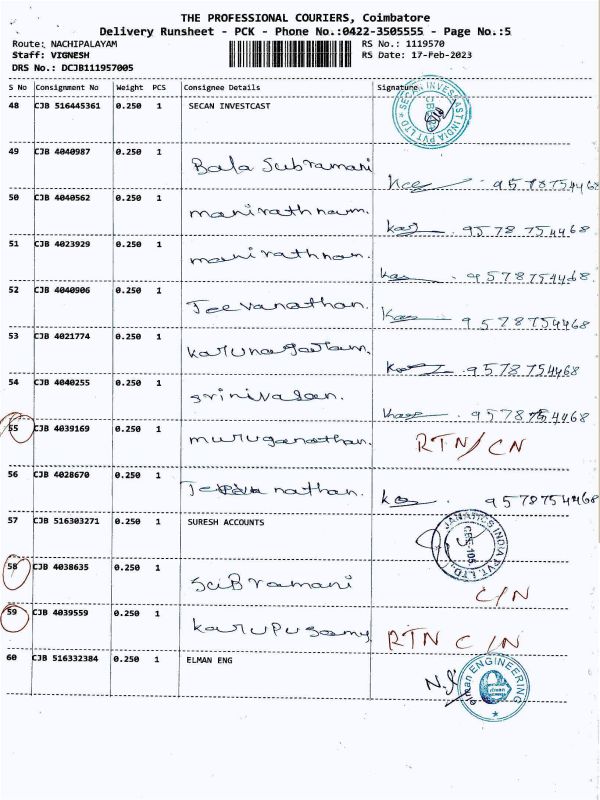 THE PROFESSIONAL COURIERS, Coimbatore
Delivery Runsheet - PCK - Phone No.:0422-3505555 - Page No.:5
Route: NACHIPALAYAM RS No.: 1119570
Staff: VIGNESH RS Date: 17-Feb-2023
DRS No.: DCJB111957005
S No Consignment No Weight PCS Consignee Details Signature
48 CJB 516445361 0.250 1 SECAN INVESTCAST
SECAN INVESTCAST INDIA PVT. LTD
49 CJB 4040987 0.250 1
Bala Subramani 9578754468
50 CJB 4040562 0.250 1
manirathnam. 9578 754468
51 CJB 4023929 0.250 1
manirathnam. 9578754468.
52 CJB 4040906 0.250 1
Jeevanathan. 9578754468
53 CJB 4021774 0.250 1
9578754468
54 CJB 4040255 0.250 1
srinivasan. 9578754468
55 CJB 4039169 0.250 1
muruganathan. RTN/CN
56 CJB 4028670 0.250 1
nathan. 9578754468
57 CJB 516303271 0.250 1 SURESH ACCOUNTS
JANATICS INDIA PVT. LTD.,
CBE-105
58 CJB 4038635 0.250 1
SuBramani C/N
59 CJB 4039559 0.250 1
KaruPusamy RTN C/N
60 CJB 516332384 0.250 1 ELMAN ENG
elman ENGINEERING